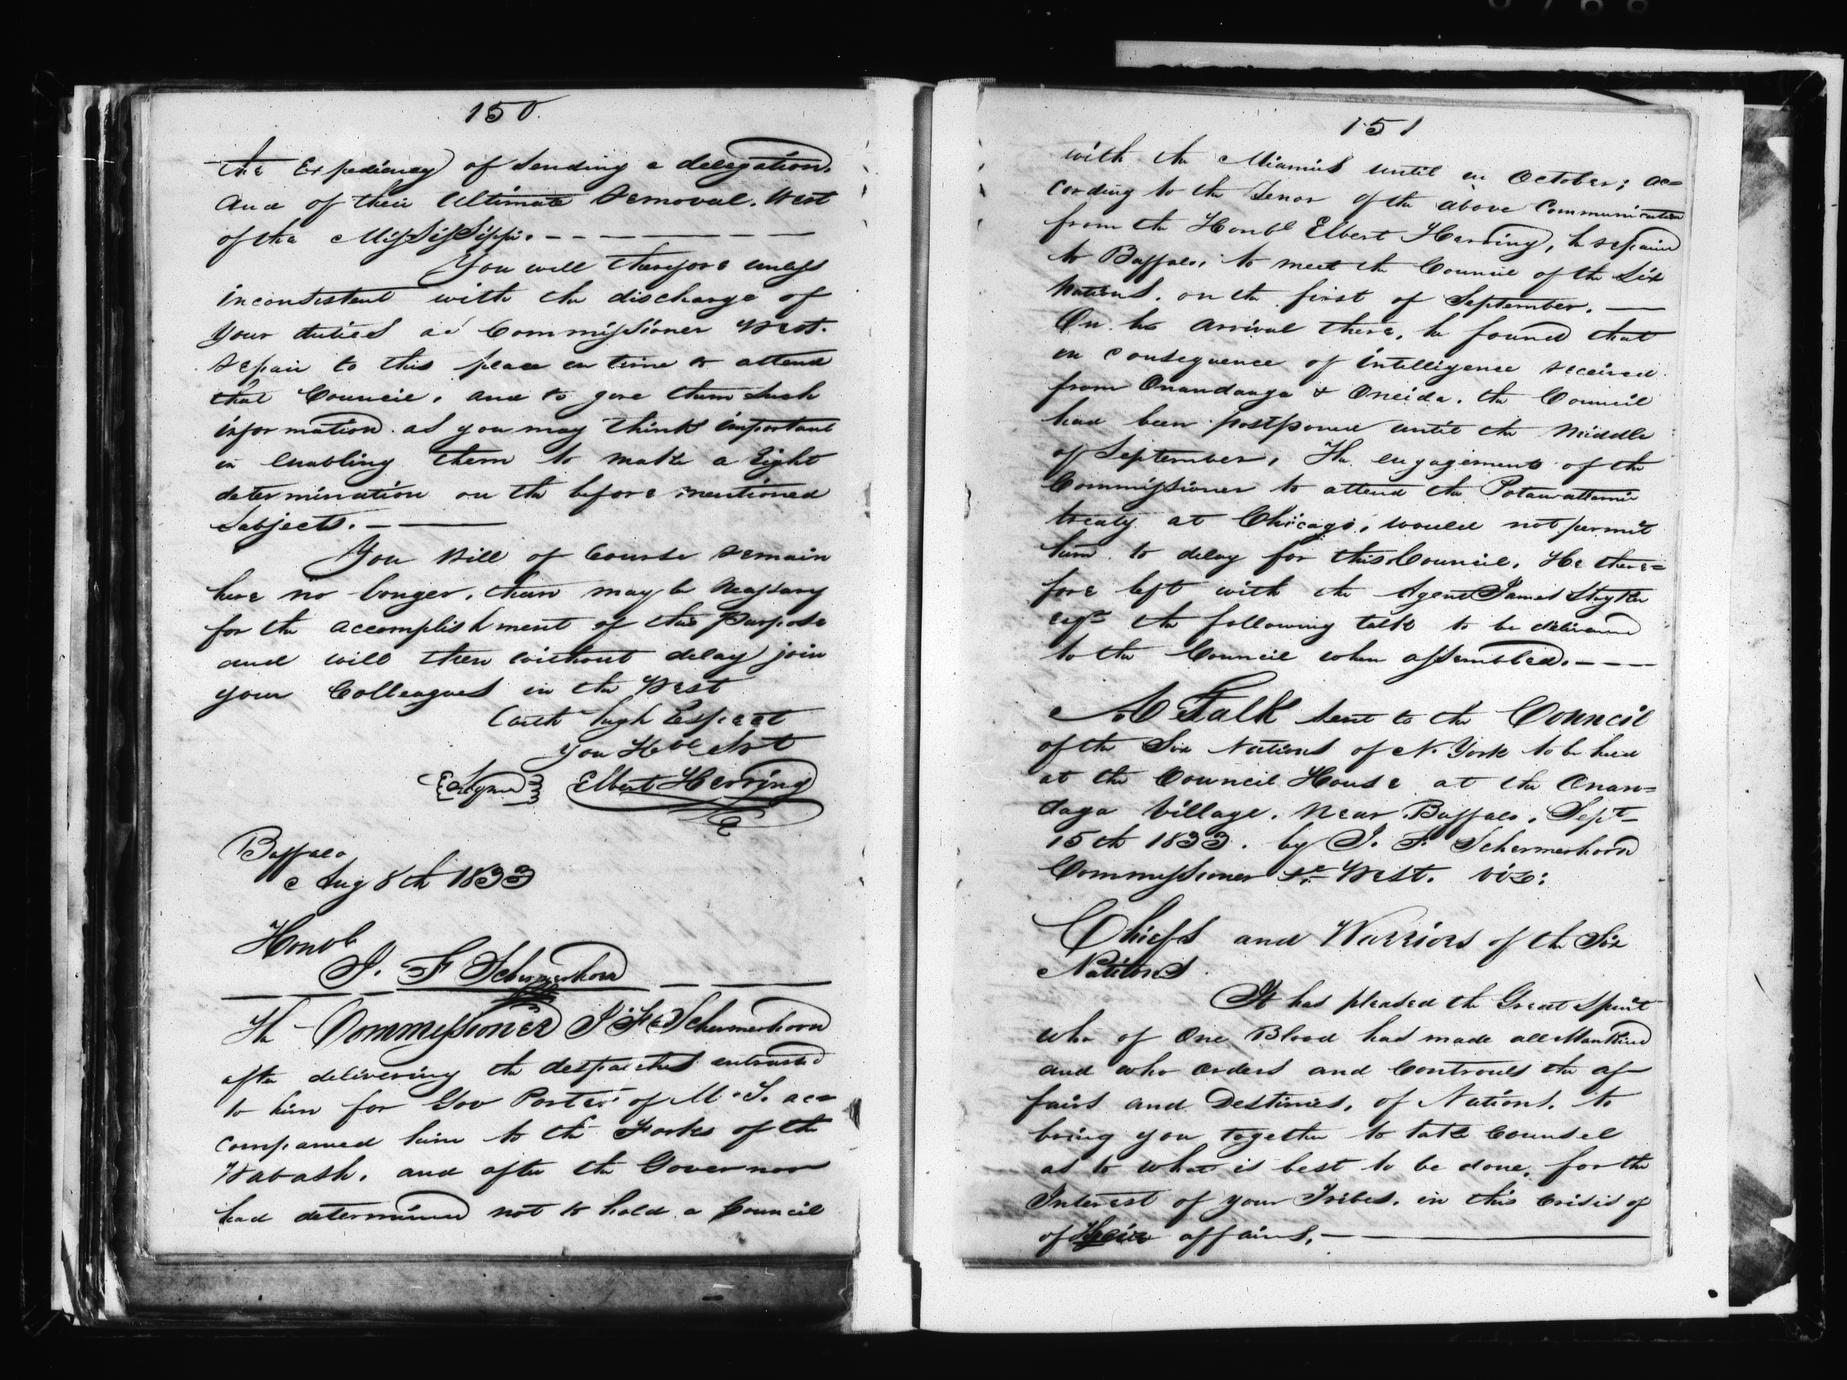 150.
the Expediency of sending a delegation.
and of their Ultimate removal. West
of the Mississippi. — — — — — —
You will therefore unless
inconsistent with the discharge of
your duties as Commissioner West.
repair to this place in time to attend
that Council, and to give them such
information as you may think important
in enabling them to make a right
determination on the before mentioned
Subjects. — ———
You will of Course remain
here no longer, than may be necessary
for the accomplishment of this Purpose
and will then without delay join
your Colleagues in the West
with high Respect
you Hble Svt
{Signed} Elbert Herring
Buffalo
Aug 8th 1833
Honbl
J. F Schermerhorn
The Commissioner J F Schermerhorn
after delivering the despatches entrusted
to him for Gov Porter of M. T. ac=
companied him to the Forks of the
Wabash, and after the Governor
had determined not to hold a Council
151
with the Miamis until in October; ac=
cording to the Tenor of the above Communication
from the Honbl Elbert Herring, he repaired
to Buffalo, to meet the Council of the Six
Nations, on the first of September. —
On his arrival there, he found that
in consequence of intelligence received
from Onandauga & Oneida. the Council
had been postponed until the middle
of September, The engagements of the
Commissioner to attend the Potawattamie
treaty at Chicago, would not permit
him to delay for this Council. He there=
fore left with the Agent James Stryker
esqr the following talk to be delivered
to the Council when assembled. — — —
A Talk sent to the Council
of the Six Nations of N. York to be held
at the Council House at the Onan=
daga Village, Near Buffalo, Sept
15th 1833. by J. F. Schermerhorn
Commissioner &c West. viz:
Chiefs and Warriors of the Six
Nations
It has pleased the Great Spirit
who of One Blood has made all Mankind
and who orders and Controuls the af
fairs and Destinies, of Nations, to
bring you together to take Counsel
as to what is best to be done, for the
Interest of your Tribes, in this crisis of
of their affairs. —